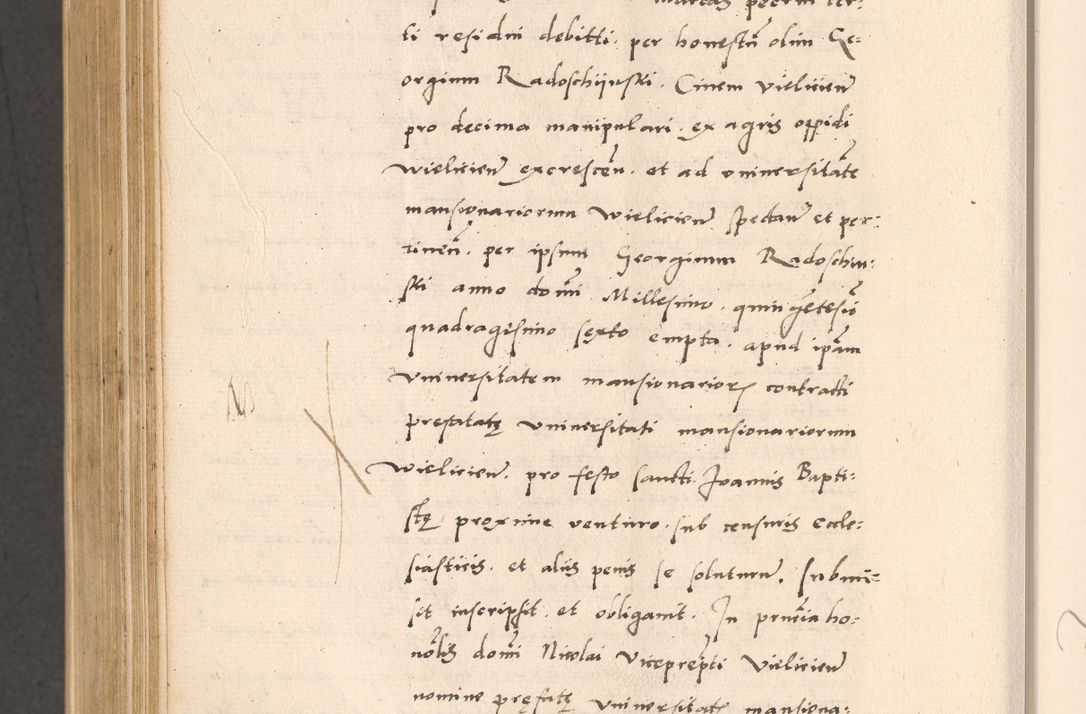 marcas pecun ter-
ti residui debitti. per honestũ olim Ge-
orgium Radoschijnski. Civem vielicieñ
pro decima manipulari. ex agris oppidi
wielicieñ excrescẽn. et ad vniversitãte
mansionariorum wielicieñ spectañ et per-
tineñ. per ipsum Georgium Radoschin-
ski anno domĩ Millesimo. quingẽtesiõ
quadragesimo sexto empta. apud ipãm
vniversitatem mansionarior contracti
prefatatę vniversitati mansionariorum
wielicieñ. pro festo sancti Joannis Bapti-
stę proxime venturo. sub censuris eccle-
siasticis. et aliis penis se soluturũ. Submi-
sit inscripsit. et obligavit. In pñtia ho-
nõlis domĩ Nicolai viceprepti vielicieñ
nomine pręfatę vniversitatis mansiona-